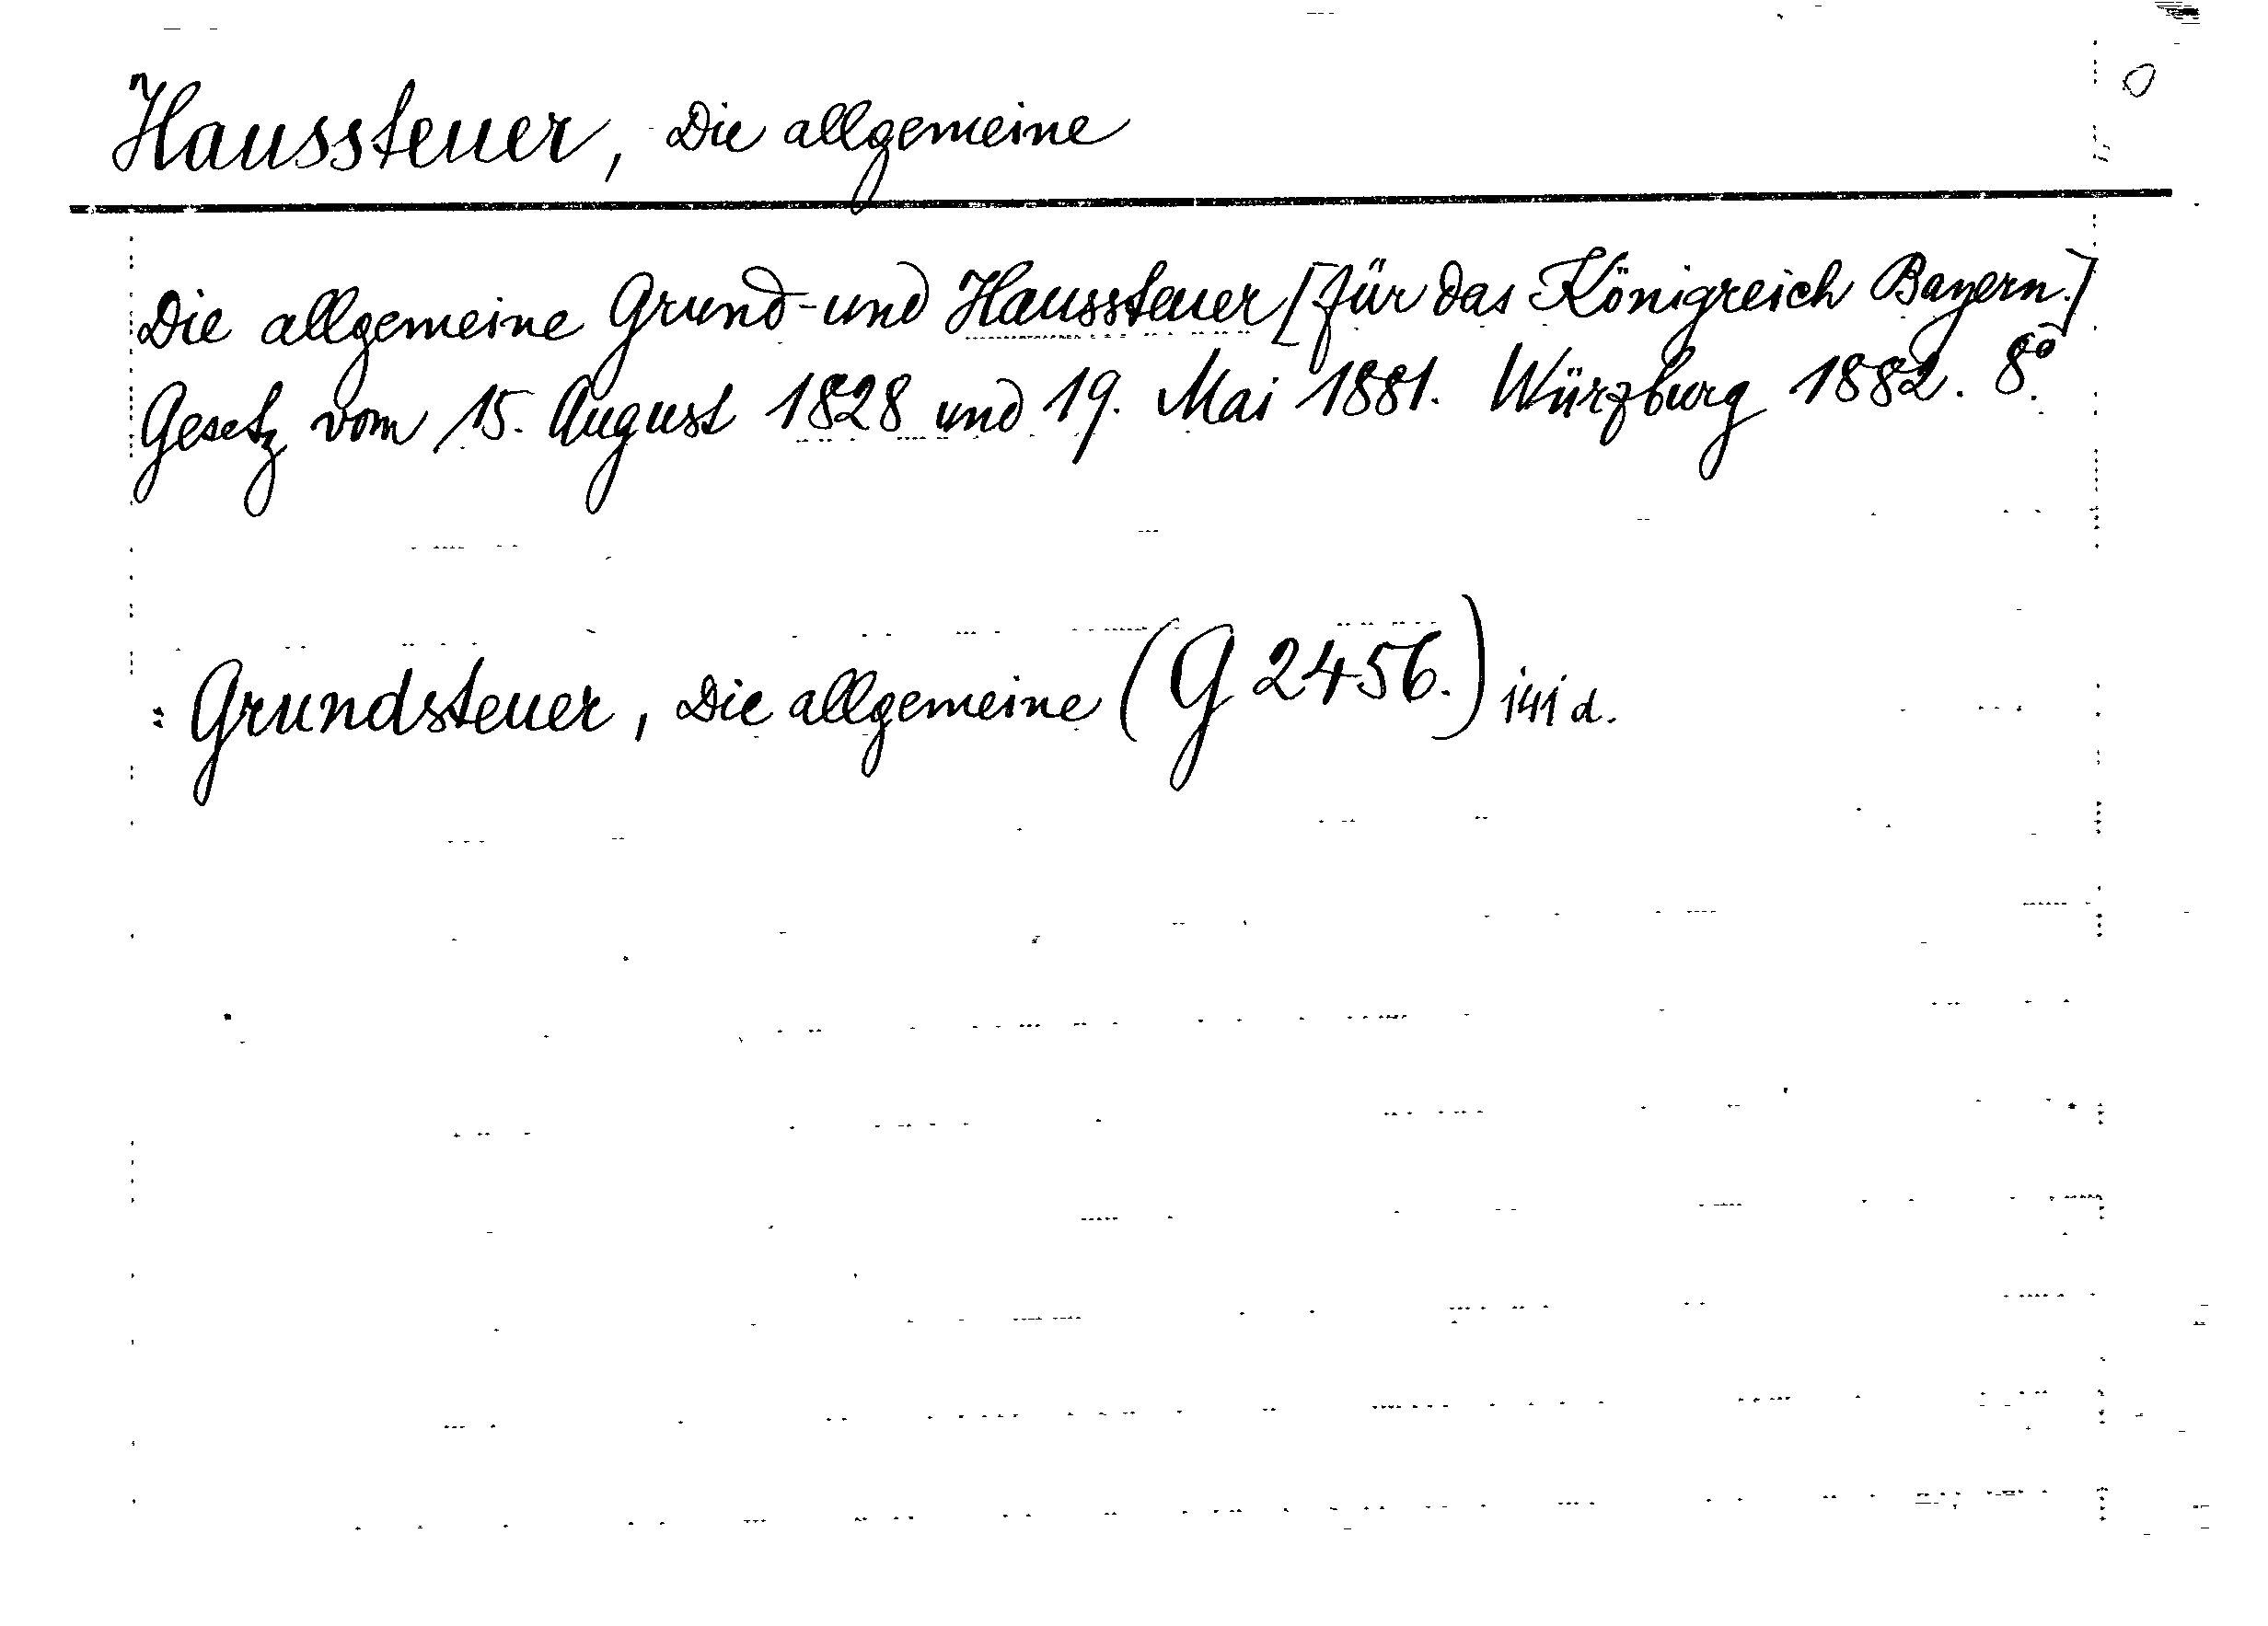 Haussteuer, Die allgemeine
Die allgemeine Grund- und Haussteuer [für das Königreich Bayern.]
Gesetz vom 15. August 1828 und 19. Mai 1881. Würzburg 1882. 8º.
: Grundsteuer, Die allgemeine (G 2456.) 141 d.